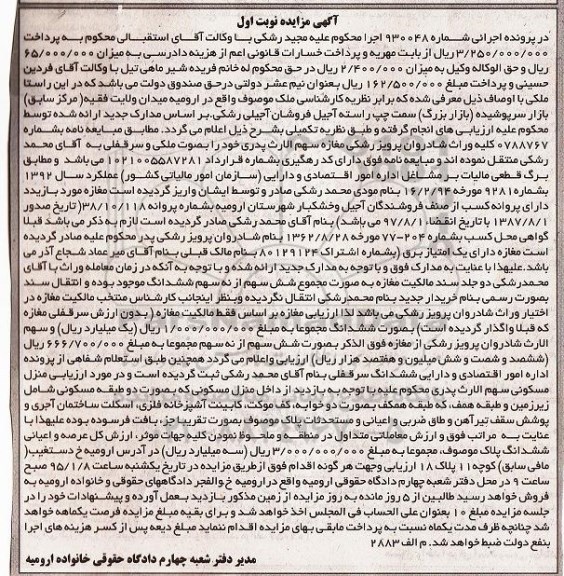 آگهی مزایده نوبت اول
در پرونده اجرائی شماره ۹۳۰۰۴۸ اجرا محکوم علیه مجید رشکی با وکالت آقای استقبالی محکوم به پرداخت
۳/۲۵۰/۰۰۰/۰۰۰ ریال از بابت مهریه و پرداخت خسارات قانونی اعم از هزینه دادرسی به میزان ۶۵/۰۰۰/۰۰۰
ریال و حق الوکاله وکیل به میزان ۲/۴۰۰/۰۰۰ ریال در حق محکوم له خانم فریده شیر ماهی تیل با وکالت آقای فردین
حسینی و پرداخت مبلغ ۱۶۲/۵۰۰/۰۰۰ ریال بعنوان نیم عشر دولتی درحق صندوق دولت می باشد که در این راستا
ملکی با اوصاف ذیل معرفی شده که برابر نظریه کارشناسی ملک موصوف واقع در ارومیه میدان ولایت فقیه( مرکز سابق)
بازار سرپوشیده (بازار بزرگ) سمت چپ راسته آجیل فروشان آجیلی رشکی.بر اساس مدارک جدید ارائه شده توسط
محکوم علیه ارزیابی های انجام گرفته و طبق نظریه تکمیلی بشرح ذیل اعلام می گردد. مطابق مبایعه نامه بشماره
۰۷۸۸۷۶۷ کلیه وراث شادروان پرویز رشکی مغازه سهم الارث پدری خود را بصوت ملکی و سرقفلی به آقای محمد
رشکی منتقل نموده اند و مبایعه نامه فوق دارای کد رهگیری بشماره قرارداد ۱۰۲۱۰۰۵۵۸۷۲۸۱ می باشد و مطابق
برگ قطعی مالیات بر مشاغل اداره امور اقتصادی و دارایی (سازمان امور مالیاتی کشور) عملکرد سال ۱۳۹۲
بشماره ۹۲۸۱ مورخه ۱۶/۲/۹۴ بنام مودی محمد رشکی صادر و توسط ایشان واریز گردیده است مغازه مورد بازدید
دارای پروانه کسب از صنف فروشندگان آجیل وخشکبار شهرستان ارومیه بشماره پروانه ۳۸/۱۰/۱۱۸( تاریخ صدور
۱۳۸۷/۸/۱ با تاریخ انقضا ۹۷/۸/۱ می باشد) بنام آقای محمد رشکی صادر گردیده است لازم به ذکر می باشد قبلا
گواهی محل کسب بشماره ۲۰۴-۷۷ مورخه ۱۳۶۲/۸/۲۸ بنام شادروان پرویز رشکی پدر محکوم علیه صادر گردیده
است مغازه دارای یک امتیاز برق (بشماره اشتراک ۸۰۱۲۹۱۲۴ بنام مالک قبلی بنام آقای میر عماد شجاع آذر می
باشد.علیهذا با عنایت به مدارک فوق و با توجه به مدارک جدید ارائه شده و با توجه به آنکه در زمان معامله وراث با آقای
محمدرشکی دو جلد سند مالکیت مغازه به صورت مجموع شش سهم از نه سهم ششدانگ موجود بوده و انتقال سند
بصورت رسمی بنام خریدار جدید بنام محمدرشکی انتقال نگردیده وبنظر اینجانب کارشناس منتخب مالکیت مغازه در
اختیار وراث شادروان پرویز رشکی می باشد لذا ارزیابی مغازه بر اساس فقط مالکیت مغازه ( بدون ارزش سرقفلی مغازه
که قبلا واگذار گردیده است) بصورت ششدانگ مجموعا به مبلغ ۱/۰۰۰/۰۰۰/۰۰۰ ریال (یک میلیارد ریال) و سهم
الارث شادروان پرویز رشکی از مغازه فوق الذکر بصورت شش سهم از نه سهم مجموعا به مبلغ ۶۶۶/۷۰۰/۰۰۰ ریال
(ششصد و شصت و شش میلیون و هفتصد هزار ریال) ارزیابی واعلام می گردد همچنین طبق استعلام شفاهی از پرونده
اداره امور اقتصادی و دارایی ششدانگ سرقفلی بنام آقای محمد رشکی ثبت گردیده است و در مورد ارزیابی منزل
مسکونی سهم الارث پدری محکوم علیه با توجه به بازدید از داخل منزل مسکونی که بصورت دو طبقه مسکونی شامل
زیرزمین و طبقه همف، که طبقه همکف بصورت دو خوابه، کف موکت، کابینت آشپزخانه فلزی، اسکلت ساختمان آجری و
پوشش سقف تیرآهن و طاق ضربی و اعیانی و مستحدثات ملک موصوف بصورت تقریبا در بافت فرسوده بوده علیهذا با
عنایت به مراتب فوق و ارزش معاملاتی متداول در منطقه و ملحوظ نمودن کلیه جهات موثر، ارزش کل عرصه و اعیانی
ششدانگ پلاک موصوف، مجموعا به مبلغ ۳/۰۰۰/۰۰۰/۰۰۰ ریال (سه میلیارد ریال) در آدرس ارومیه خ دستغیب(
مافی سابق) کوچه ۱۱ پلاک ۱۸ ارزیابی وجهت هر گونه اقدام فوق از طریق مزایده در تاریخ یکشنبه ساعت ۹۵/۱/۸ صبح
ساعت ۹ در محل دفتر شعبه چهارم دادگاه حقوقی ارومیه واقع در ارومیه خ والفجر دادگاههای حقوقی و خانواده ارومیه به
فروش خواهد رسید طالبین از ۵ روز مانده به روز مزایده از زمین مذکور بازدید بعمل آورده و پیشنهادات خود را در
جلسه مزایده مبلغ ۱۰ بعنوان علی الحساب فی المجلس اخذ خواهد شد و برای بقیه مبلغ مزایده فرصت یکماهه خواهد
شد چنانچه ظرف مدت یکماه نسبت به پرداخت مابقی بهای مزایده اقدام ننماید مبلغ دیعه پس از کسر هزینه های اجرا
بنفع دولت ضبط خواهد شد. م الف ۲۸۸۳
مدیر دفتر شعبه چهارم دادگاه حقوقی خانواده ارومیه